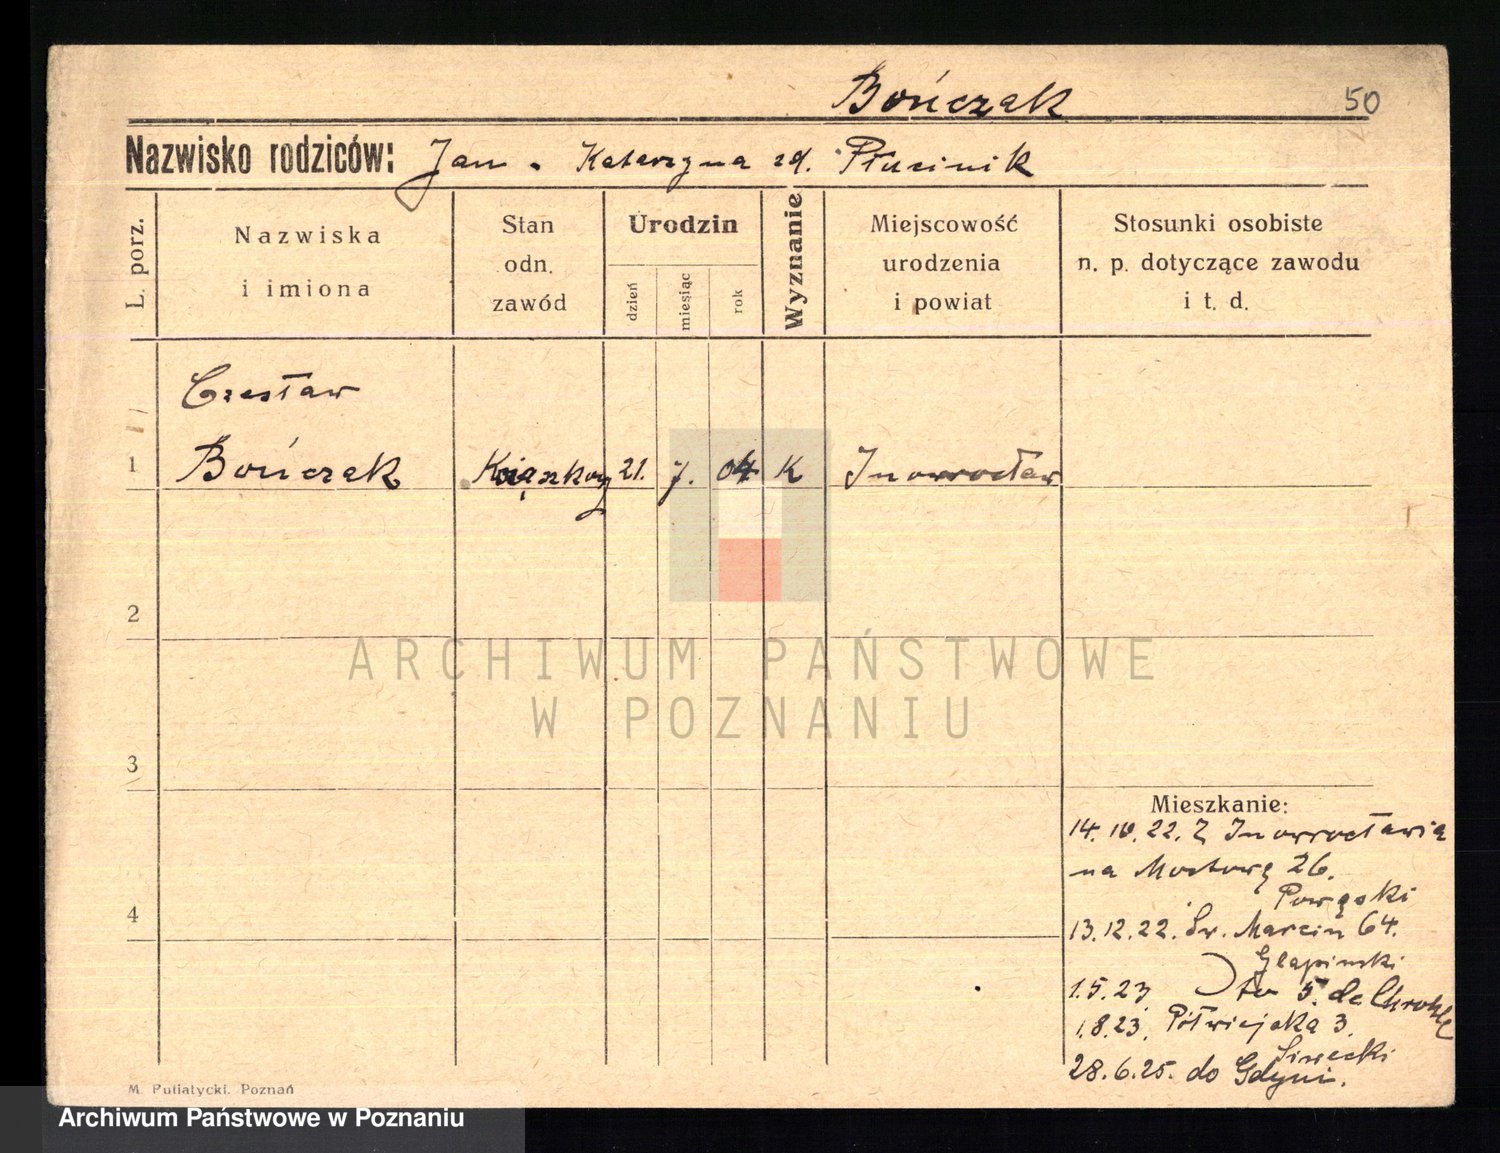 Bończak
50
Nazwisko rodziców: Jan - Katarzyna zd. Płucinik
L. porz.
Nazwiska
i imiona
Stan
odn.
zawód
Urodzin
dzień
miesiąc
rok
Wyznanie
Miejscowość
urodzenia
i powiat
Stosunki osobiste
n. p. dotyczące zawodu
i t. d.
Czesław
1 Bończak 21. 7. 04 K Inowrocław
2
3
4
Mieszkanie:
14. 10. 22. Z Inowrocławia
na Mostową 26.
Powąski
13. 12. 22. Św. Marcin 64.
Glapinski
1.5.23 to 5. de
1.8.23. Półwiejska 3.
Siwecki
28.6.25. do Gdyni.
M. Putiatycki. Poznań
ARCHIWUM PAŃSTWOWE
W POZNANIU
Archiwum Państwowe w Poznaniu